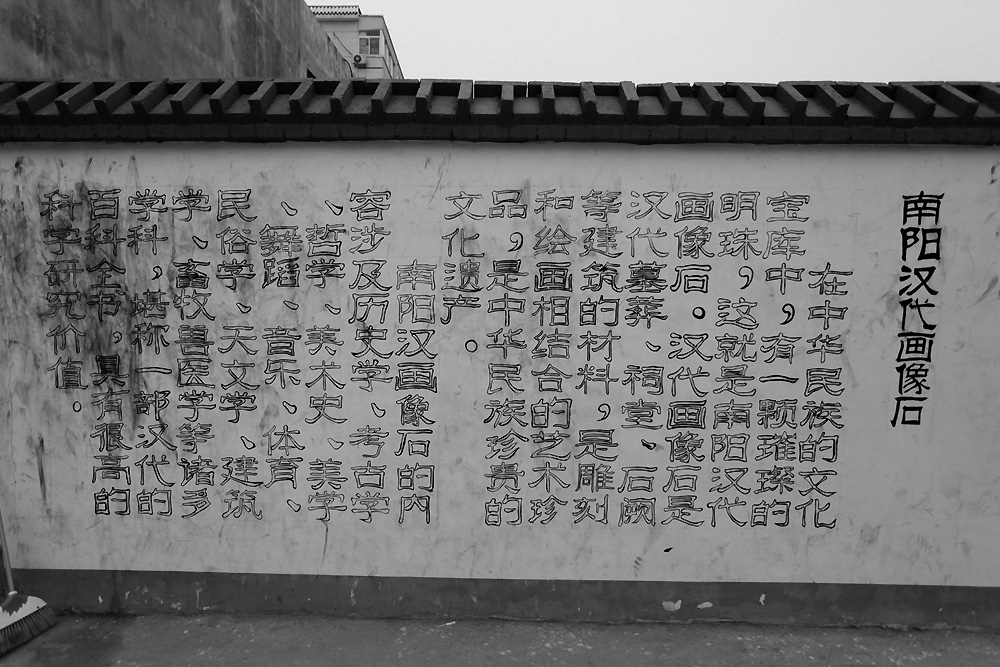 南阳汉代画像石
在中华民族的文化
宝库中，有一颗璀璨的
明珠，这就是南阳汉代
画像石。汉代画像石是
汉代墓葬、祠堂、石阙
等建筑的材料，是雕刻
和绘画相结合的艺术珍
品，是中华民族珍贵的
文化遗产。
南阳汉画像石的内
容涉及历史学、考古学
、哲学、美术史、美学
、舞蹈、音乐、体育、
民俗学、天文学、建筑
学、畜牧兽医学等诸多
学科，堪称一部汉代的
百科全书，具有很高的
科学研究价值。